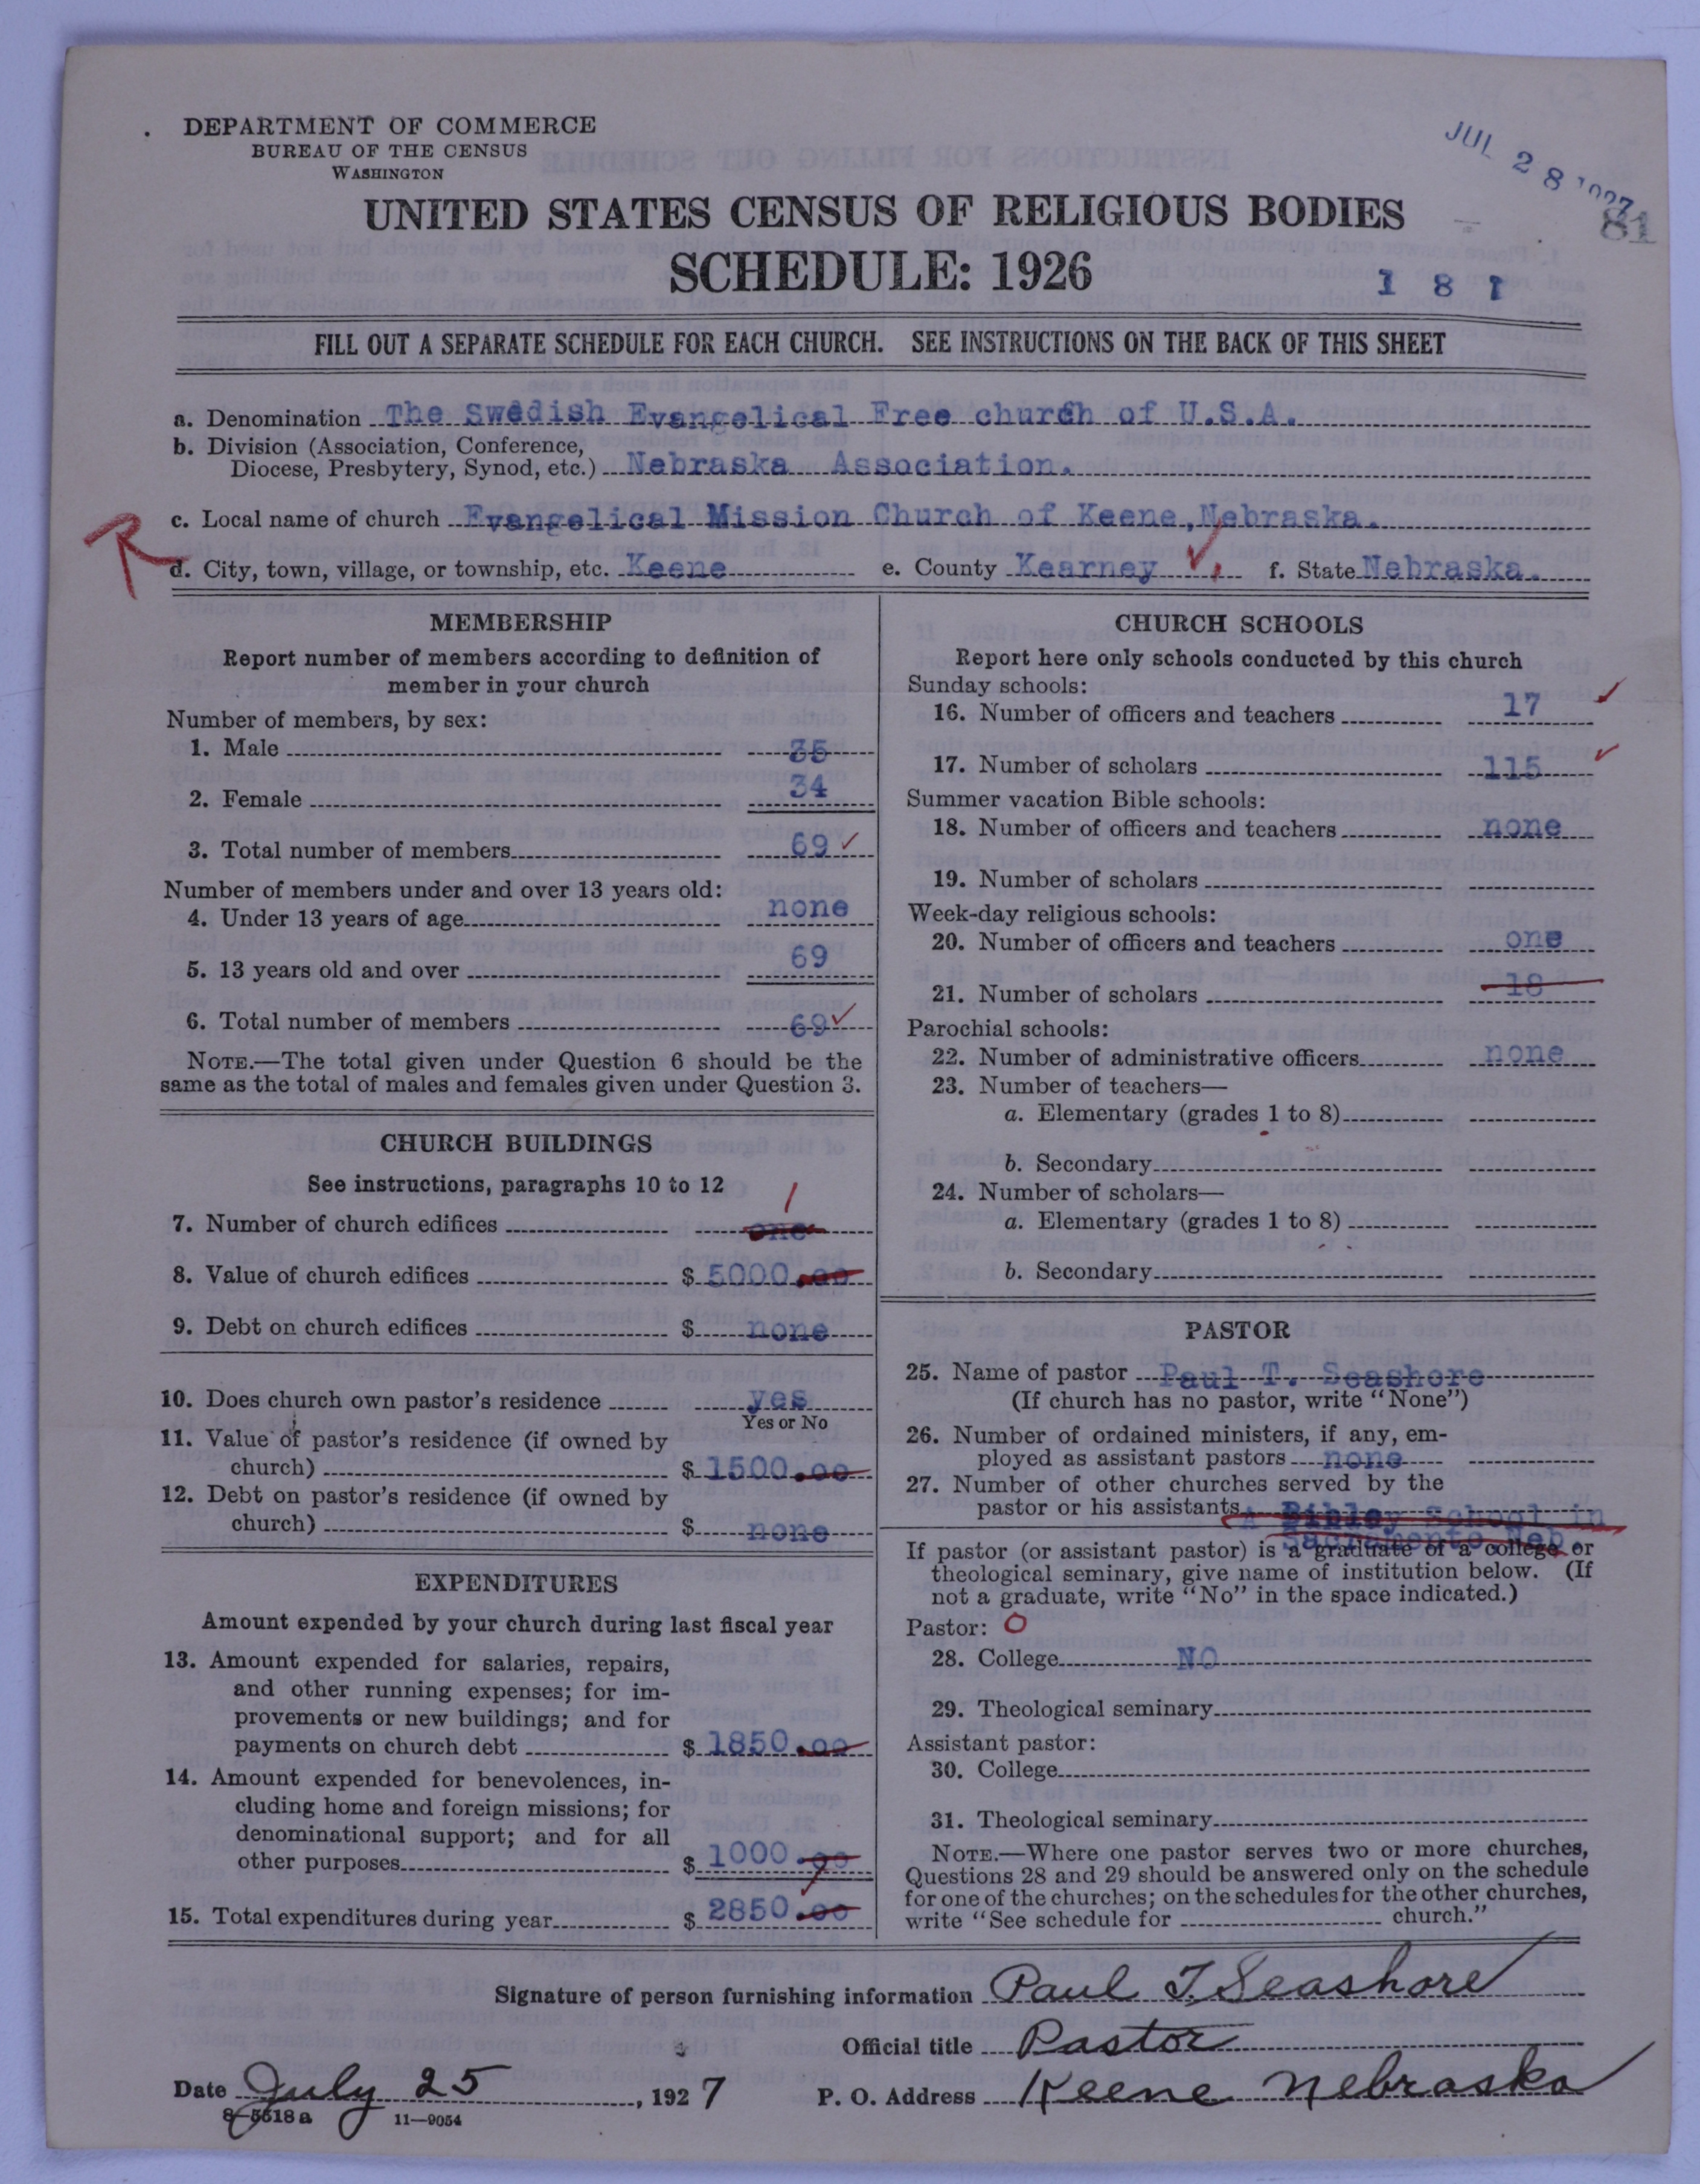 DEPARTMENT OF COMMERCE
BUREAU OF THE CENSUS
WASHINGTON
JUL 28 1927
81
UNITED STATES CENSUS OF RELIGIOUS BODIES
SCHEDULE: 1926
1 8 1
FILL OUT A SEPARATE SCHEDULE FOR EACH CHURCH. SEE INSTRUCTIONS ON THE BACK OF THIS SHEET
a. Denomination The Swedish Evangelical Free church of U.S.A.
b. Division (Association, Conference,
Diocese, Presbytery, Synod, etc.) Nebraska Association.
c. Local name of church Evangelical Mission Church of Keene, Nebraska.
d. City, town, village, or township, etc. Keene e. County Kearney f. State Nebraska.
MEMBERSHIP
Report number of members according to definition of
member in your church
Number of members, by sex:
1. Male 35
2. Female 34
3. Total number of members 69
Number of members under and over 13 years old:
4. Under 13 years of age none
5. 13 years old and over 69
6. Total number of members 69
NOTE.—The total given under Question 6 should be the
same as the total of males and females given under Question 3.
CHURCH BUILDINGS
See instructions, paragraphs 10 to 12
1
7. Number of church edifices one
8. Value of church edifices $ 5000.00
9. Debt on church edifices $ none
10. Does church own pastor's residence yes
Yes or No
11. Value of pastor's residence (if owned by
church) $ 1500.00
12. Debt on pastor's residence (if owned by
church) $ none
EXPENDITURES
Amount expended by your church during last fiscal year
13. Amount expended for salaries, repairs,
and other running expenses; for im-
provements or new buildings; and for
payments on church debt $ 1850.00
14. Amount expended for benevolences, in-
cluding home and foreign missions; for
denominational support; and for all
other purposes $ 1000.00
15. Total expenditures during year $ 2850.00
CHURCH SCHOOLS
Report here only schools conducted by this church
Sunday schools:
16. Number of officers and teachers 17
17. Number of scholars 115
Summer vacation Bible schools:
18. Number of officers and teachers none
19. Number of scholars
Week-day religious schools:
20. Number of officers and teachers one
21. Number of scholars 18
Parochial schools:
22. Number of administrative officers none
23. Number of teachers—
a. Elementary (grades 1 to 8)
b. Secondary
24. Number of scholars—
a. Elementary (grades 1 to 8)
b. Secondary
PASTOR
25. Name of pastor Paul T. Seashore
(If church has no pastor, write "None")
26. Number of ordained ministers, if any, em-
ployed as assistant pastors none
27. Number of other churches served by the
pastor or his assistants A Bible School in
Sacramento, Neb
If pastor (or assistant pastor) is a graduate of a college or
theological seminary, give name of institution below. (If
not a graduate, write "No" in the space indicated.)
Pastor: O
28. College NO
29. Theological seminary
Assistant pastor:
30. College
31. Theological seminary
NOTE.—Where one pastor serves two or more churches,
Questions 28 and 29 should be answered only on the schedule
for one of the churches; on the schedules for the other churches,
write "See schedule for church."
Signature of person furnishing information Paul T. Seashore
Official title Pastor
Date July 25, 1927 P. O. Address Keene Nebraska
8-5618a 11—9054